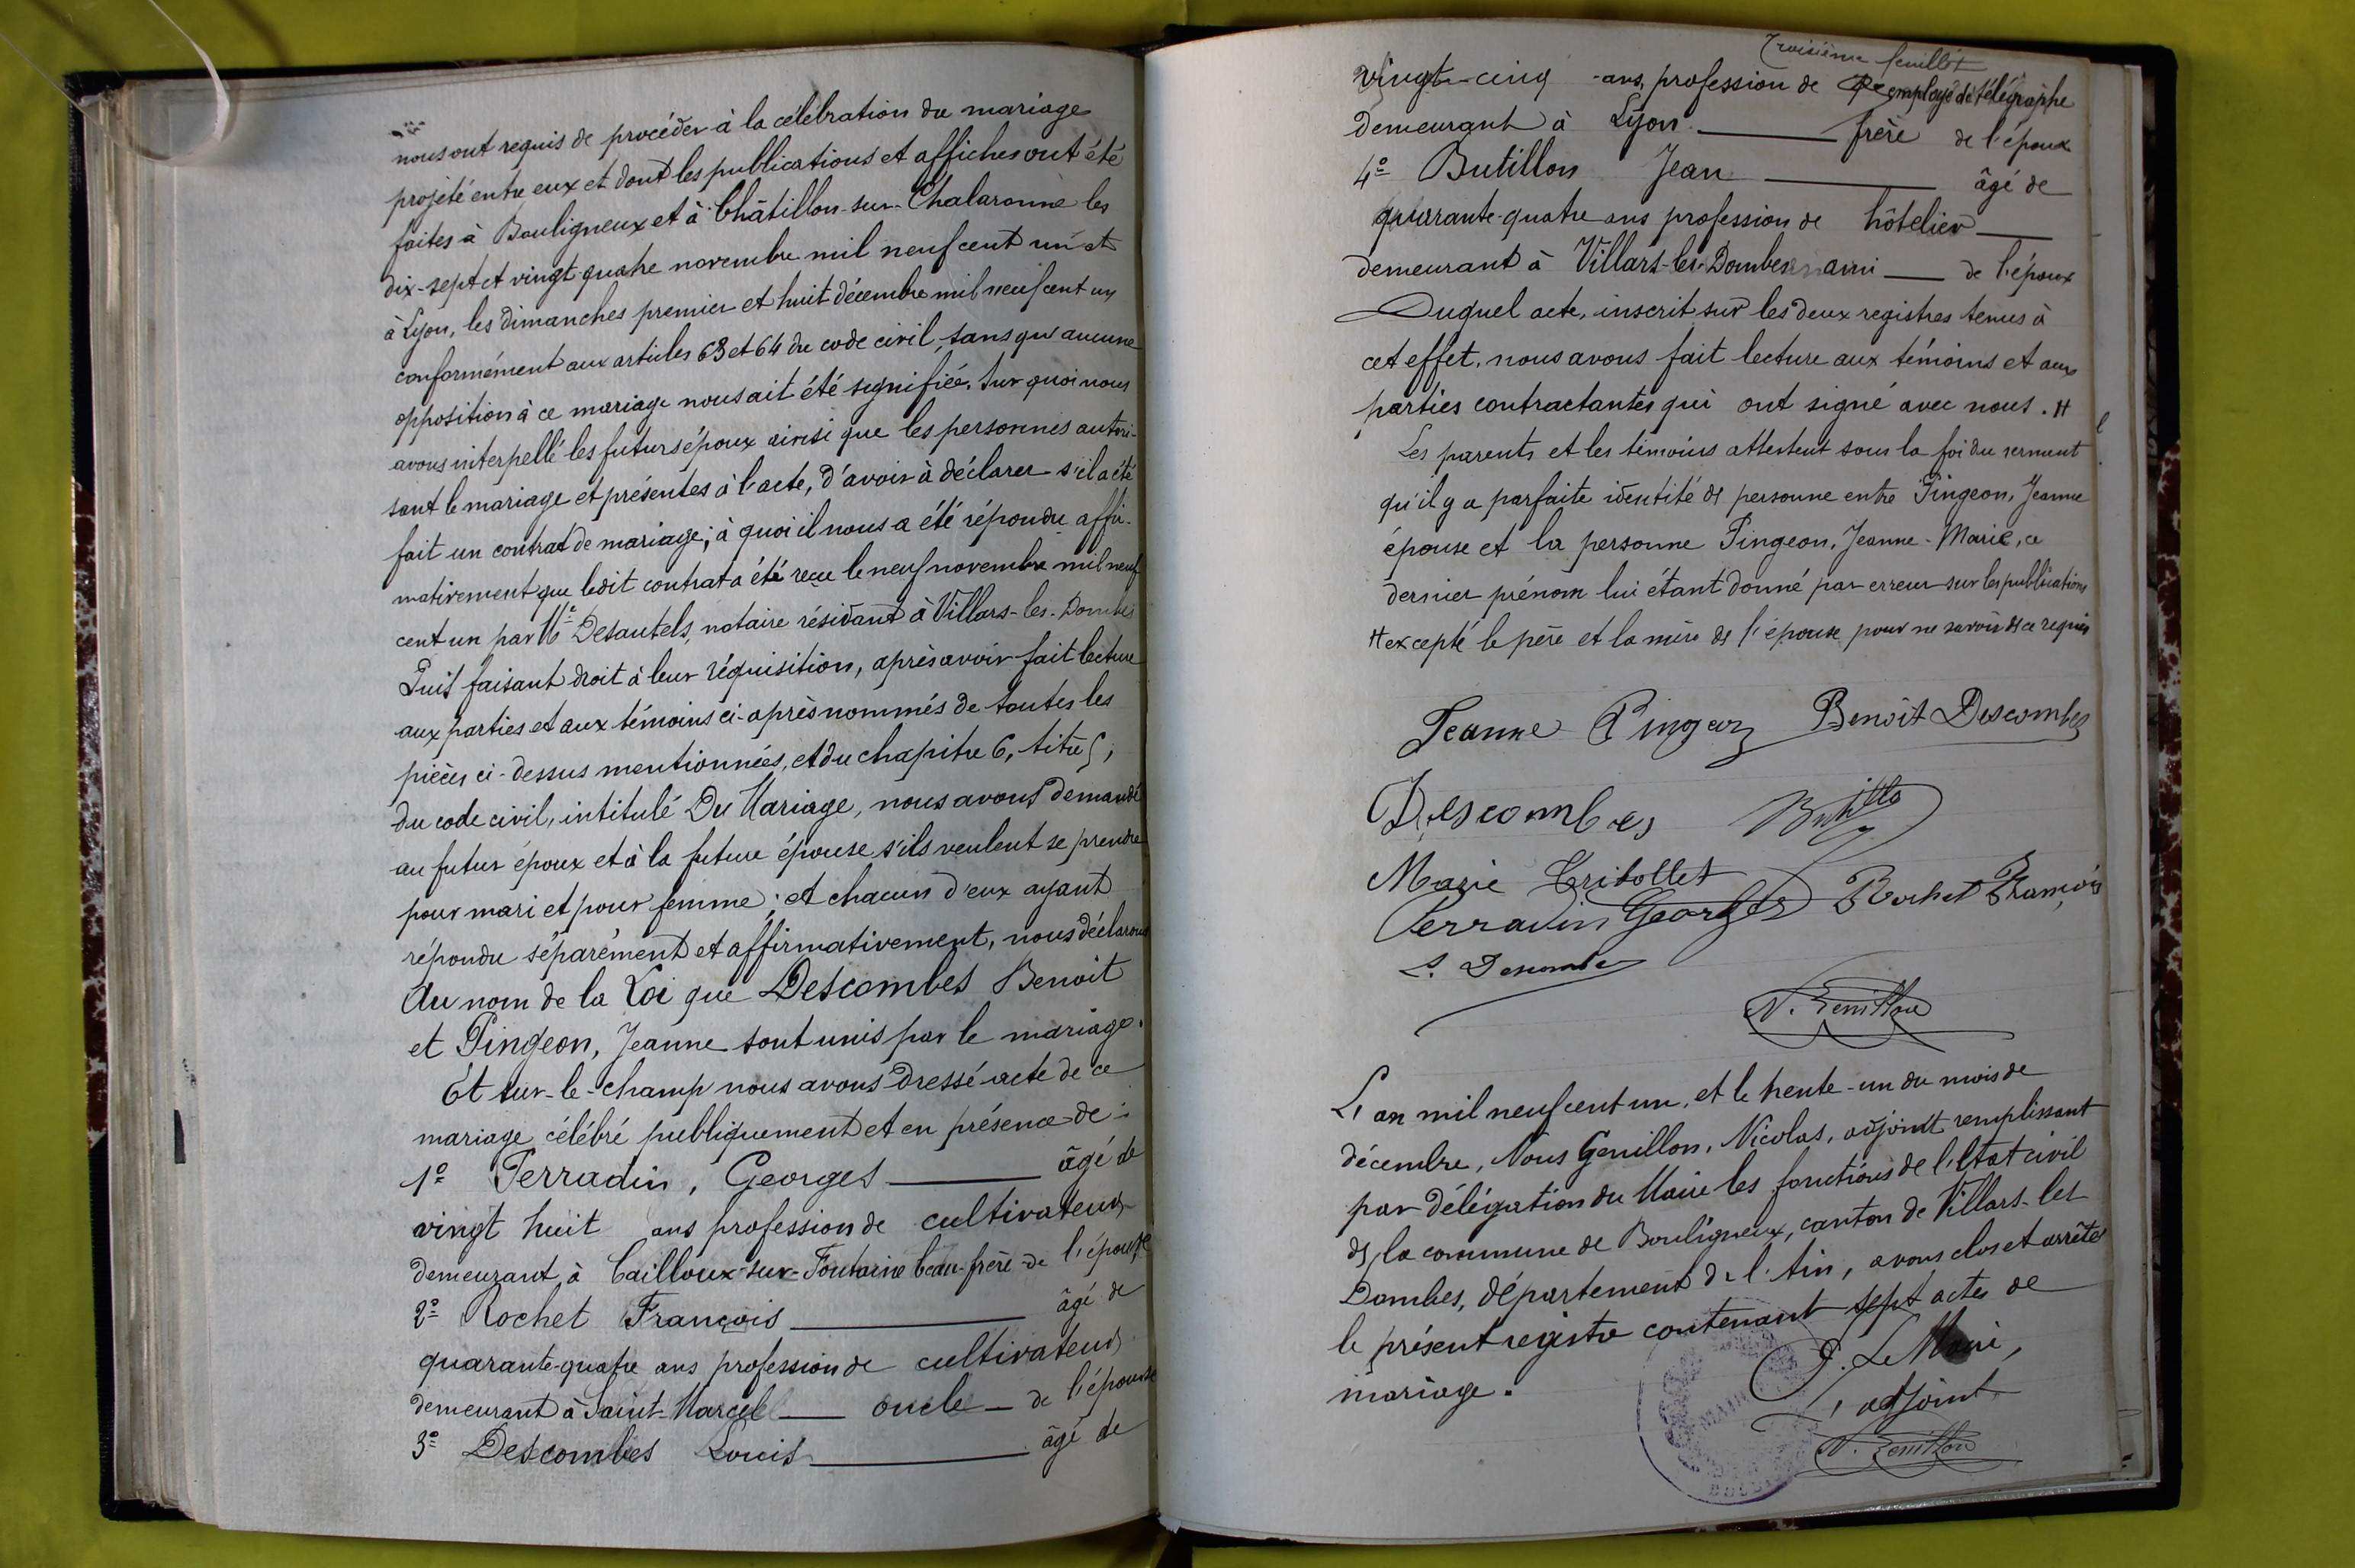 nous ont requis de procéder à la célébration du mariage
projeté entre eux et dont les publications et affiches ont été
faites à Bouligneux et à Châtillon-sur-Chalaronne les
dix-sept et vingt-quatre novembre mil neuf cent un et
à Lyon, les dimanches premier et huit décembre mil neuf cent un
conformément aux articles 63 et 64 du code civil, sans qu'aucune
opposition à ce mariage nous ait été signifiée. Sur quoi nous
avons interpellé les futurs époux ainsi que les personnes autori-
sant le mariage et présentes à l'acte, d'avoir à déclarer s'il a été
fait un contrat de mariage; à quoi il nous a été répondu affir-
mativement que ledit contrat a été reçu le neuf novembre mil neuf
cent un par Me Desautels, notaire résidant à Villars-les-Dombes
Puis faisant droit à leur réquisition, après avoir fait lecture
aux parties et aux témoins ci-après nommés de toutes les
pièces ci-dessus mentionnées, et du chapitre 6, titre 5,
du code civil, intitulé Du Mariage, nous avons demandé
au futur époux et à la future épouse s'ils veulent se prendre
pour mari et pour femme; et chacun d'eux ayant
répondu séparément et affirmativement, nous déclarons
Au nom de la Loi que Descombes Benoit
et Pingeon, Jeanne sont unis par le mariage.
Et sur-le-champ nous avons dressé acte de ce
mariage célébré publiquement et en présence de :
1º Perradin, Georges âgé de
vingt huit ans profession de cultivateur
demeurant à Cailloux-sur-Fontaine beau-frère de l'épouse
2º Rochet François âgé de
quarante-quatre ans profession de cultivateur
demeurant à Saint-Marcel oncle de l'épouse
3º Descombes Louis âgé de
Troisième feuillet
vingt-cinq ans, profession de employé de télégraphe
demeurant à Lyon frère de l'époux
4º Butillon Jean âgé de
quarante-quatre ans profession de hôtelier
demeurant à Villars-les-Dombes ami de l'époux
Duquel acte, inscrit sur les deux registres tenus à
cet effet, nous avons fait lecture aux témoins et aux
parties contractantes qui ont signé avec nous. #
Les parents et les témoins attestent sous la foi du serment
qu'il y a parfaite identité de personne entre Pingeon, Jeanne
épouse et la personne Pingeon, Jeanne-Marie, ce
dernier prénom lui étant donné par erreur sur les publications
# excepté le père et la mère de l'épouse pour ne savoir de ce requis
Jeanne Pingeon Benoît Descombes
Descombes
Marie Tribollet
Perradin Georges Rochet François
L. Descombes
N. Genillon
L'an mil neuf cent un, et le trente-un du mois de
décembre, Nous Genillon, Nicolas, adjoint remplissant
par délégation du Maire les fonctions de l'Etat civil
de la commune de Bouligneux, canton de Villars-les-
Dombes, département de l'Ain, avons clos et arrêté
le présent registre contenant sept actes de
mariage.
P. Le Maire,
l'adjoint,
N. Genillon